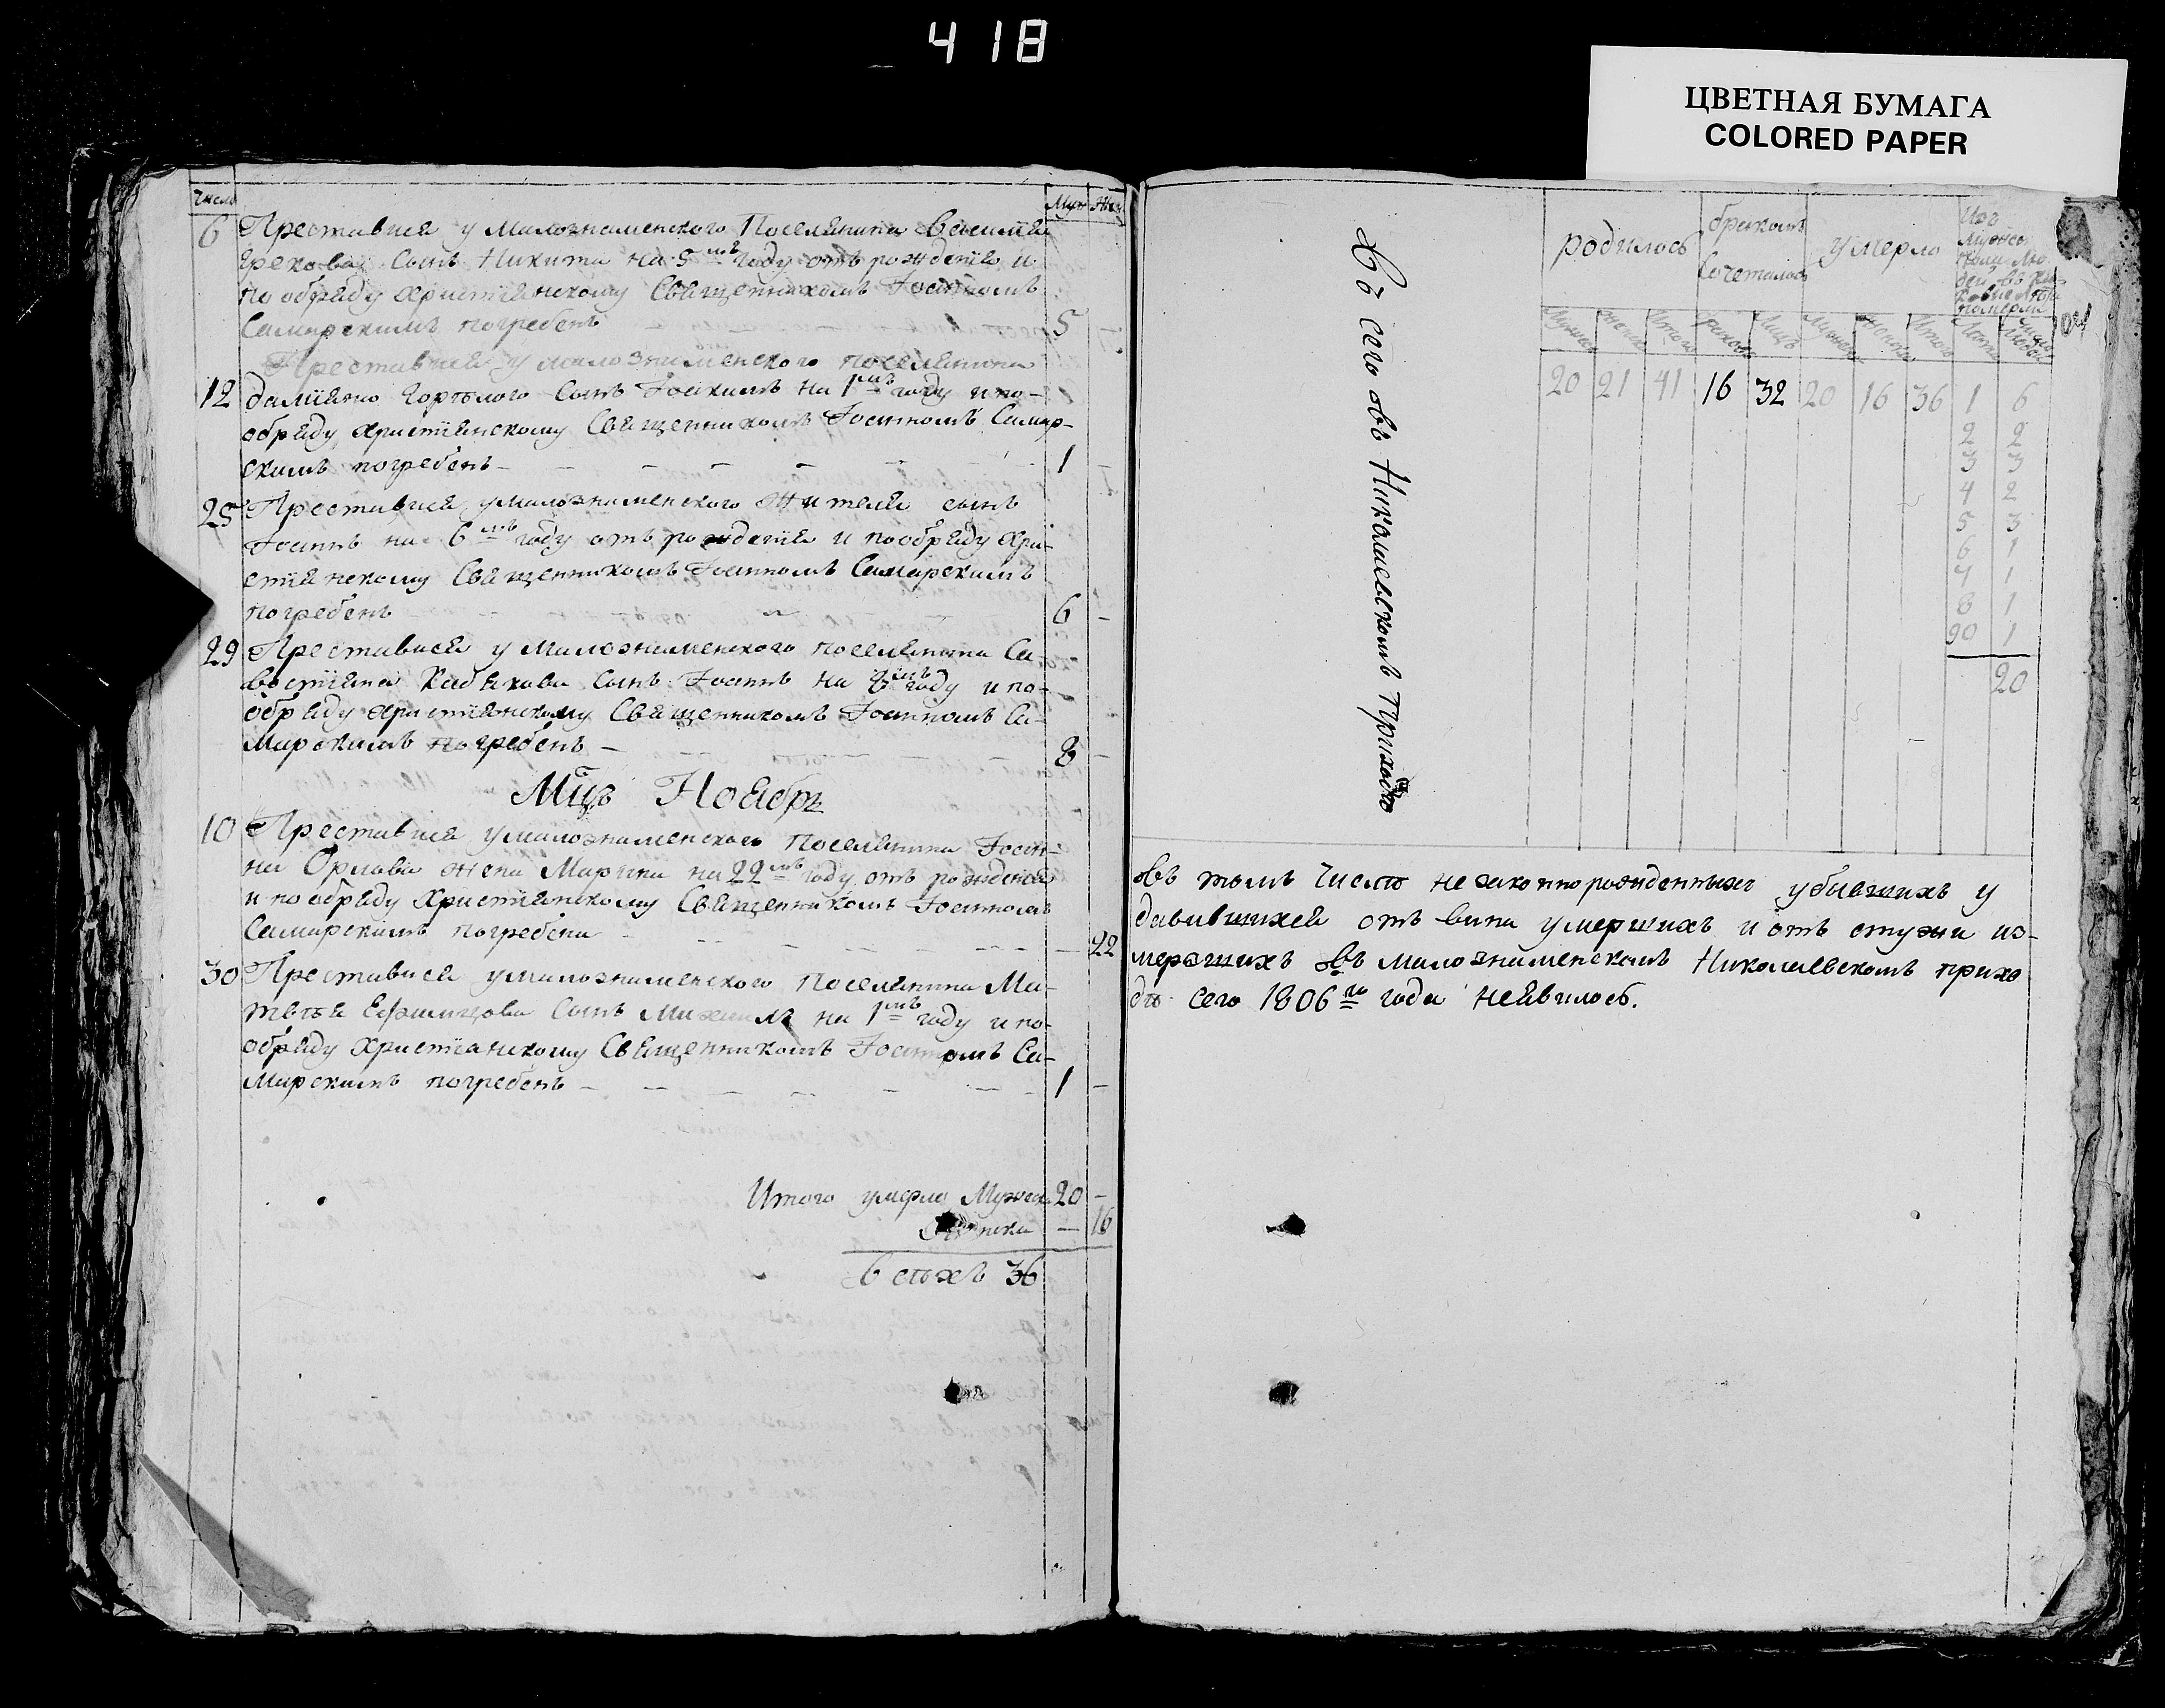 418
ЦВЕТНАЯ БУМАГА
COLORED PAPER
Число Муж Жен
6 Преставися у малознаменского Поселянина
Грекова Сынъ Никита на 5 мъ году отъ рождения и
по обряду христіянскому Священникомъ Іоанномъ
Самарскимъ погребенъ 5
Преставися у малознаменского поселянина
12 Даміяна Горблого Сынъ Іоакимъ на 1 мъ году и по-
обряду христіянскому Священникомъ Іоанномъ Самар-
скимъ погребенъ - - - - - 1 -
25 Преставися у малознаменского Жителя сынъ
Іоаннъ на 6 мъ году отъ рождения и по обряду Хри-
стіянскому Священникомъ Іоанномъ Самарскимъ
погребенъ 6 -
29 Преставися у малознаменского поселянина Са-
вастіяна Кабакова Сынъ Іоаннъ на 8 мъ году и по-
обряду христіянскому Священникомъ Іоанномъ Са-
марскимъ погребенъ - 8 -
Мцъ Ноябрь
10 Преставися у малознаменского Поселянина Іоан-
на Орлова жена Марина на 22 мъ году отъ рождения
и по обряду Христіянскому Священникомъ Іоанномъ
Самарскимъ погребена - 22
30 Преставися у малознаменского Поселянина Ма-
твѣя Сынъ Михаилъ на 1 мъ году и по-
обряду Христіанскому Священникомъ Іоанномъ Са-
марскимъ погребенъ - - - - 1 -
Итого умерло Мужеск 20 -
Женска - 16
обѣихъ 36
родилось бракомъ Сочеталось умерло Изъ Мужеска полу людей въ померли
Мужеск женск Итого Браковъ Лицъ Мужеск Женск Итого Лѣта число людей
20 21 41 16 32 20 16 36 1 6
2 2
3 3
4 2
5 3
6 1
7 1
8 1
90 1
20
сего въ Николаевскомъ Приходѣ
въ томъ Числѣ незаконнорожденныхъ убившихъ у
давившихся отъ вина умершихъ и отъ стужи из-
мерзшихъ въ малознаменскомъ Николаевскомъ прихо
дѣ сего 1806 го года неявилось.